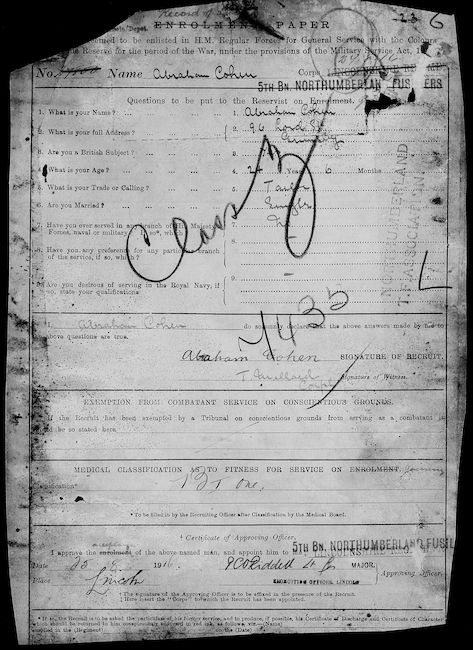 Record of
ENROLMENT PAPER
deemed to be enlisted in H.M. Regular Forces for General Service with the Colours
the Reserve for the period of the War, under the provisions of the Military Service Act,
No. Name Abraham Cohen Corps
5TH BN. NORTHUMBERLAND FUSILIERS
Questions to be put to the Reservist on Enrolment.
1. What is your Name? ... 1. Abraham Cohen
2. What is your full Address? 2. 96 Lord St
Grimsby
3. Are you a British Subject? ... 3.
4. What is your Age? ... 4. 24 Years 6 Months
5. What is your Trade or Calling? 5. Tailor
6. Are you Married? ... 6. Single
7. Have you ever served in any branch of His Majesty's
Forces, naval or military? If so*, which 7. No
8. Have you any preference for any particular branch
of the service, if so, which? 8.
9. Are you desirous of serving in the Royal Navy, if
so, state your qualifications 9.
Class Z
7435
NORTHUMBERLAND
T.F. ASSOCIATION
L
I, Abraham Cohen do solemnly declare that the above answers made by me to
above questions are true.
Abraham Cohen SIGNATURE OF RECRUIT.
Signature of Witness.
EXEMPTION FROM COMBATANT SERVICE ON CONSCIENTIOUS GROUNDS.
If the Recruit has been exempted by a Tribunal on conscientious grounds from serving as a combatant
be so stated here
MEDICAL CLASSIFICATION AS TO FITNESS FOR SERVICE ON ENROLMENT.
Classification* one.
*To be filled in by the Recruiting Officer after Classification by the Medical Board.
† Certificate of Approving Officer.
5TH BN. NORTHUMBERLAND FUSIL
I approve the enrolment of the above named man, and appoint him to the
Date 1916. MAJOR.
Approving Officer.
Place Lincoln RECRUITING OFFICER LINCOLN
† The signature of the Approving Officer is to be affixed in the presence of the Recruit.
‡ Here insert the "Corps" to which the Recruit has been appointed.
* If so, the Recruit is to be asked the particulars of his former service, and to produce, if possible, his Certificate of Discharge and Certificate of Character
which should be returned to him conspicuously endorsed in red ink, as follows, viz.—(Name)
enrolled in the (Regiment) on the (Date)